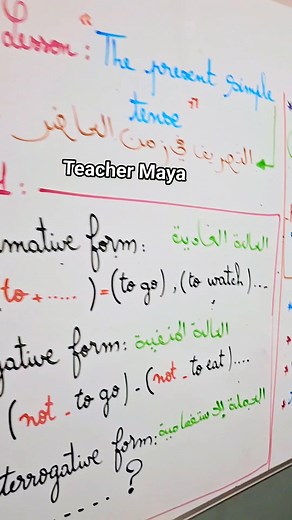 lesson: "The present simple
tense"
التصريف في زمن الحاضر
Teacher Maya
mative form: الحالة العادية
to + ......) = (to go), (to watch)...
gative form: الحالة المنفية
(not - to go) - (not - to eat)....
terrogative form: الجملة الاستفهامية
- - - - - ?